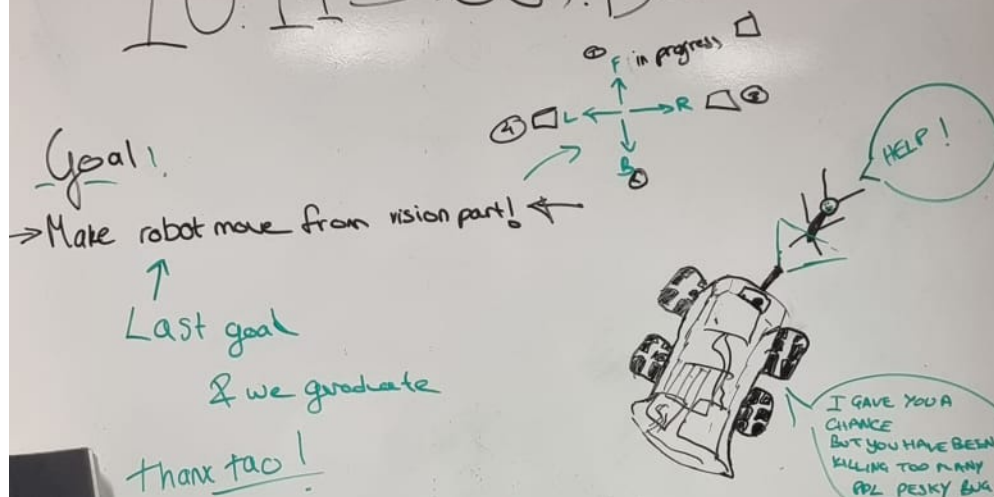 F in progress
L R
B
Goal!
Make robot move from vision part!
Last goal
& we graduate
thanx tao!
HELP!
I GAVE YOU A
CHANCE
BUT YOU HAVE BEEN
KILLING TOO MANY
PPL PESKY BUG